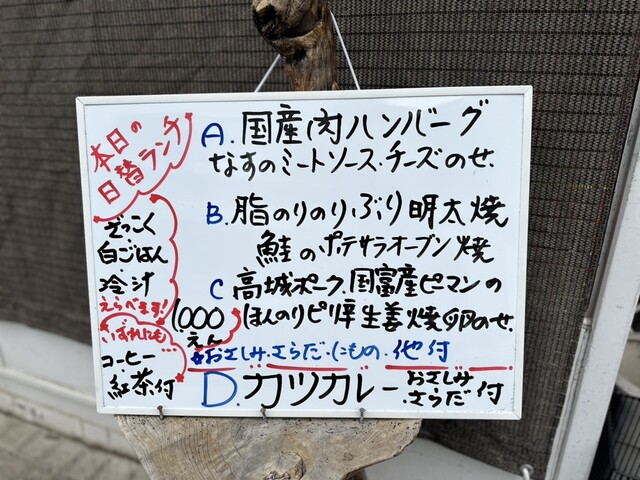 本日の
日替ランチ
A.国産肉ハンバーグ
なすのミートソース.チーズのせ.
B.脂のりのりぶり明太焼
鮭のポテサラオーブン焼
C 高城ポーク.国富産ピーマンの
ほんのりピリ辛生姜焼卵のせ.
ぞっこく
白ごはん
冷汁
えらべます!
1,000
えん
いずれにも…
コーヒー
紅茶付
おさしみ.さらだ.にもの.他付
D.カツカレー
おさしみ
.さらだ
付